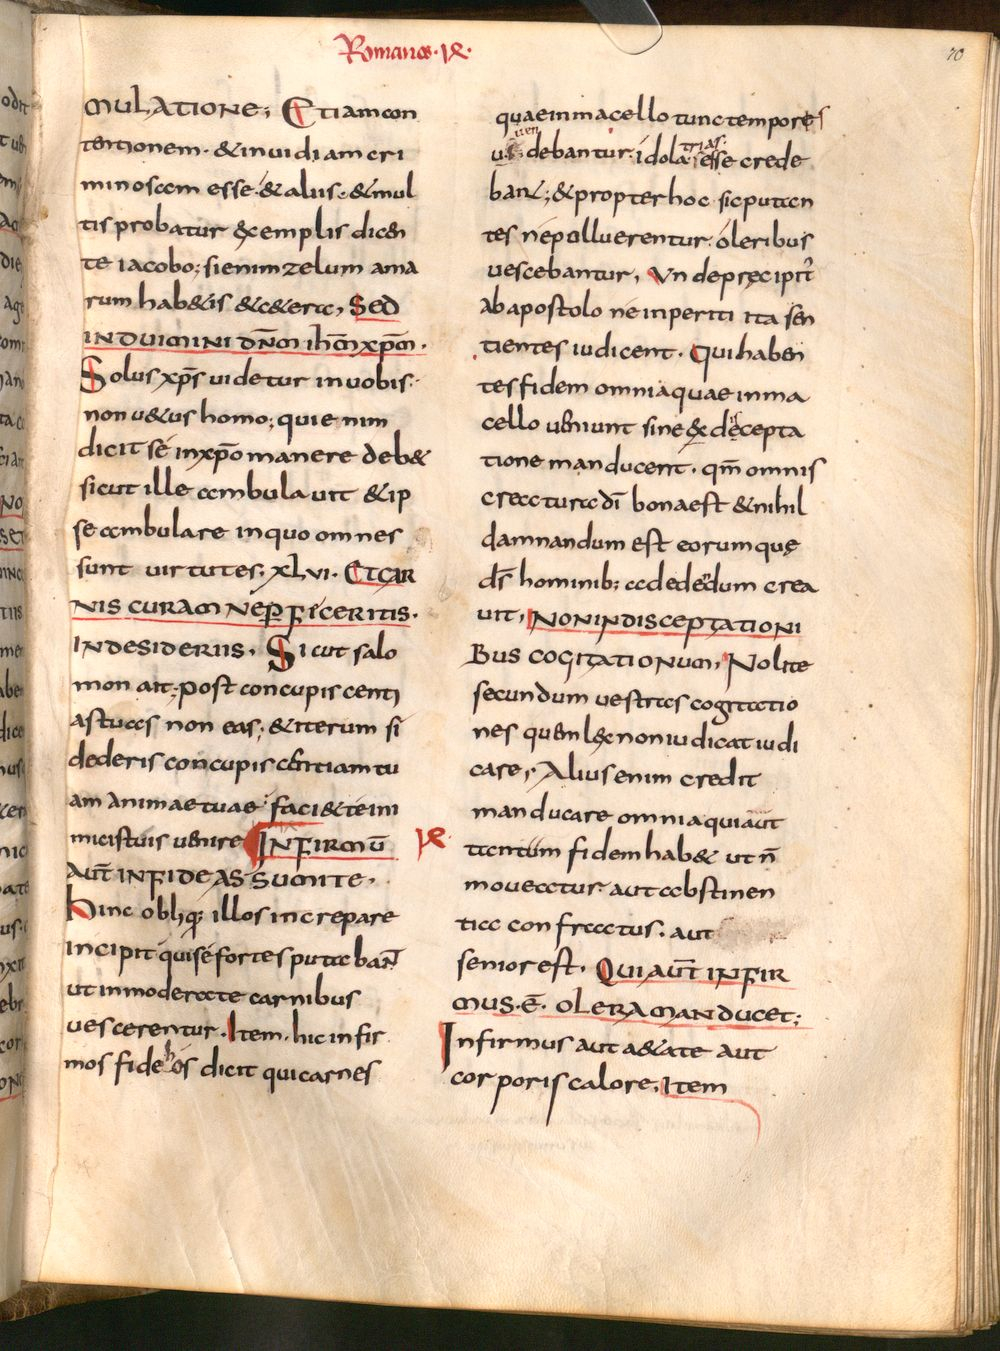 Romanos · IX ·
70
MULATIONE; Etiam con
tentionem · & inuidiam cri
minosam esse · & aliis · & mul
tis probatur exemplis dicen
te iacobo; si enim zelum ama
rum hab&is & c&era, Sed
INDUIMINI DN̅M IHM̅ XPM̅ ·
Solus xp̅s uidetur in uobis ·
non u&us homo; qui enim
dicit sé in xp̅o manere deb&
sicut ille ambulauit & ip
se ambulare in quo omnes
sunt uirtutes · XLVI · ET CAR
NIS CURAM NE PERFICERITIS ·
IN DESIDERIIS · Sicut salo
mon ait; post concupiscenti
as tuas non eas; & iterum si
dederis concupiscentiam tu
am animae tuae faci& te ini
micis tuis uenire INFIRMŪ
AUT̅ IN FIDE ASSUMITE ·
Hinc obliq; illos increpare
incipit qui sé fortes putaban̅t
ut inmoderate carnibus
uescerentur · Item · hic infir
mos fidehos dicit qui carnes
IX
quae in macello tunc tempores
uen
us debantur · idola esse crede
trias
ban&; & propter hoc sic putan
tes né polluerentur · oleribus
uescebantur, Vnde pręcipit̅
ab apostolo né inperiti ita sen
tientes iudicent · Qui haben
tes fidem omnia quae in ma
cello ueniunt sine ex decepta
tione manducent · qm̅ omnis
creatura dī bona est & nihil
damnandum est eorum quę
ds̅ hominib; ad dededum crea
uit, NON IN DISCEPTATIONI
BUS COGITATIONUM, Nolite
secundum uestras cogitatio
nes quem lęx non iudicat iudi
care, Alius enim credit
manducare omnia quia ut̅
tantum fidem hab& ut n̅
moueatur aut abstinen
tia confractus · aut
senior est · QUI AUT̅ INFIR
MUS · Ē · OLERA MANDUCET;
Infirmus aut a&ate aut
corporis calore, Item